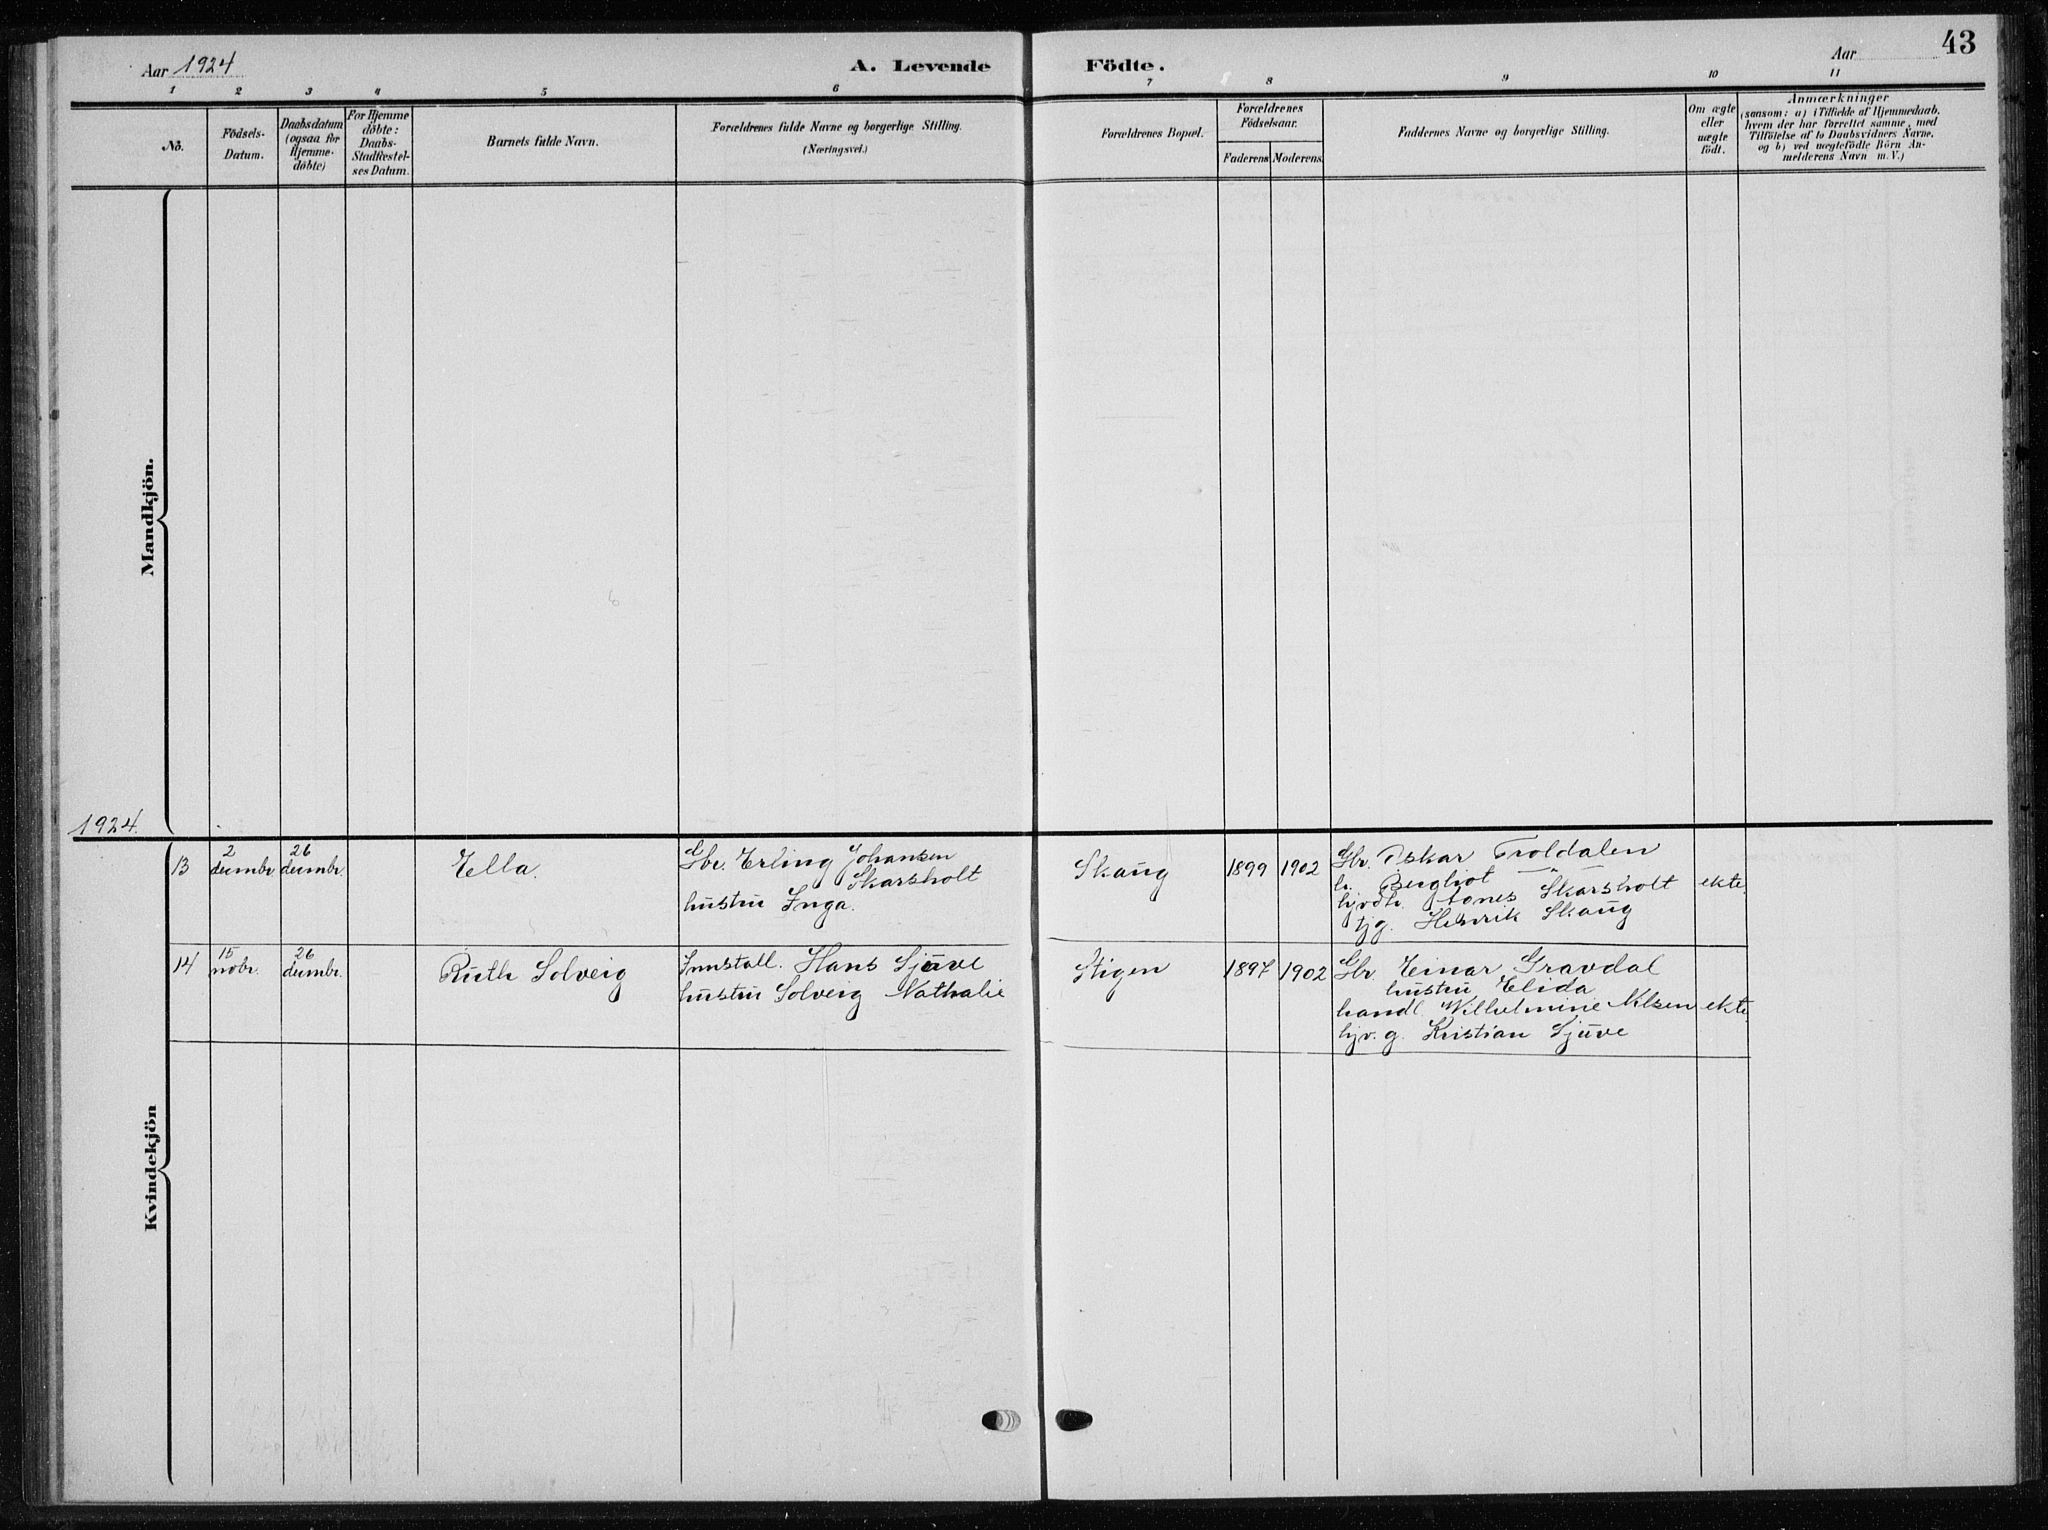 Aar 1924
A. Levende Födte.
Aar
43
1 2 3 4 5 6 7 8 9 10 11
No.
Födsels-
Datum.
Daabsdatum
(ogsaa for
Hjemme-
döbte)
For Hjemme
döbte:
Daabs-
Stadfæstel-
ses Datum.
Barnets fulde Navn.
Forældrenes fulde Navne og borgerlige Stilling.
(Næringsvei.)
Forældrenes Bopæl.
Forældrenes
Födselsaar.
Faderens Moderens
Faddernes Navne og borgerlige Stilling.
Om ægte
eller
uægte
födt.
Anmærkninger
(saasom: a) i Tilfælde af Hjemmedaab,
hvem der har forrettet samme, med
Tilföielse af to Daabsvidners Navne,
og b) ved uægtefödte Börn An-
melderens Navn m. V.)
Mandkjön.
1924.
Kvindekjön
13
2
dcumbr
26
dcumbr.
Ella.
Gbr. Erling Johansen
Skarsholt
hustru Inga.
Skaug
1899
1902
Gbr. Oskar Troldalen
h. Bergliot — " —
hjvdtr. Agnes Skarsholt
tjg. Henrik Skaug
ekte
14
15
nobr.
26
dcumbr.
Ruth Solveig
Innstall. Hans Sjuve
hustru Solveig Nathalie
Stigen
1897
1902
Gbr. Einar Gravdal
hustru Elida
handl. Wilhelmine Nilsen
hjv. g. Kristian Sjuve
ekte